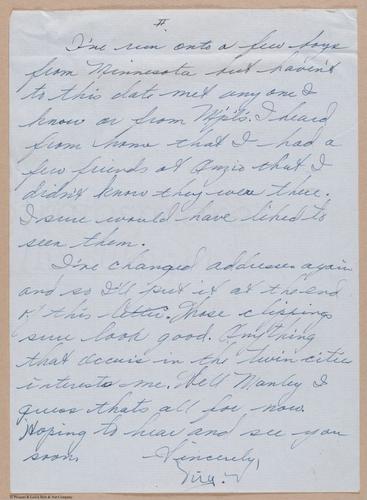 II
I've run onto a few boys
from Minnesota but haven't
to this date met any one I
know or from Mpls. I heard
from home that I had a
few friends at Anzio that I
didn't know they were there.
I sure would have liked to
seen them.
I've changed addresses again
and so I'll put it at the end
of this letter. Those clippings
sure look good. Anything
that occurs in the twin cities
interests me. Well Manley I
guess thats all for now.
Hoping to hear and see you
soon. Sincerely,